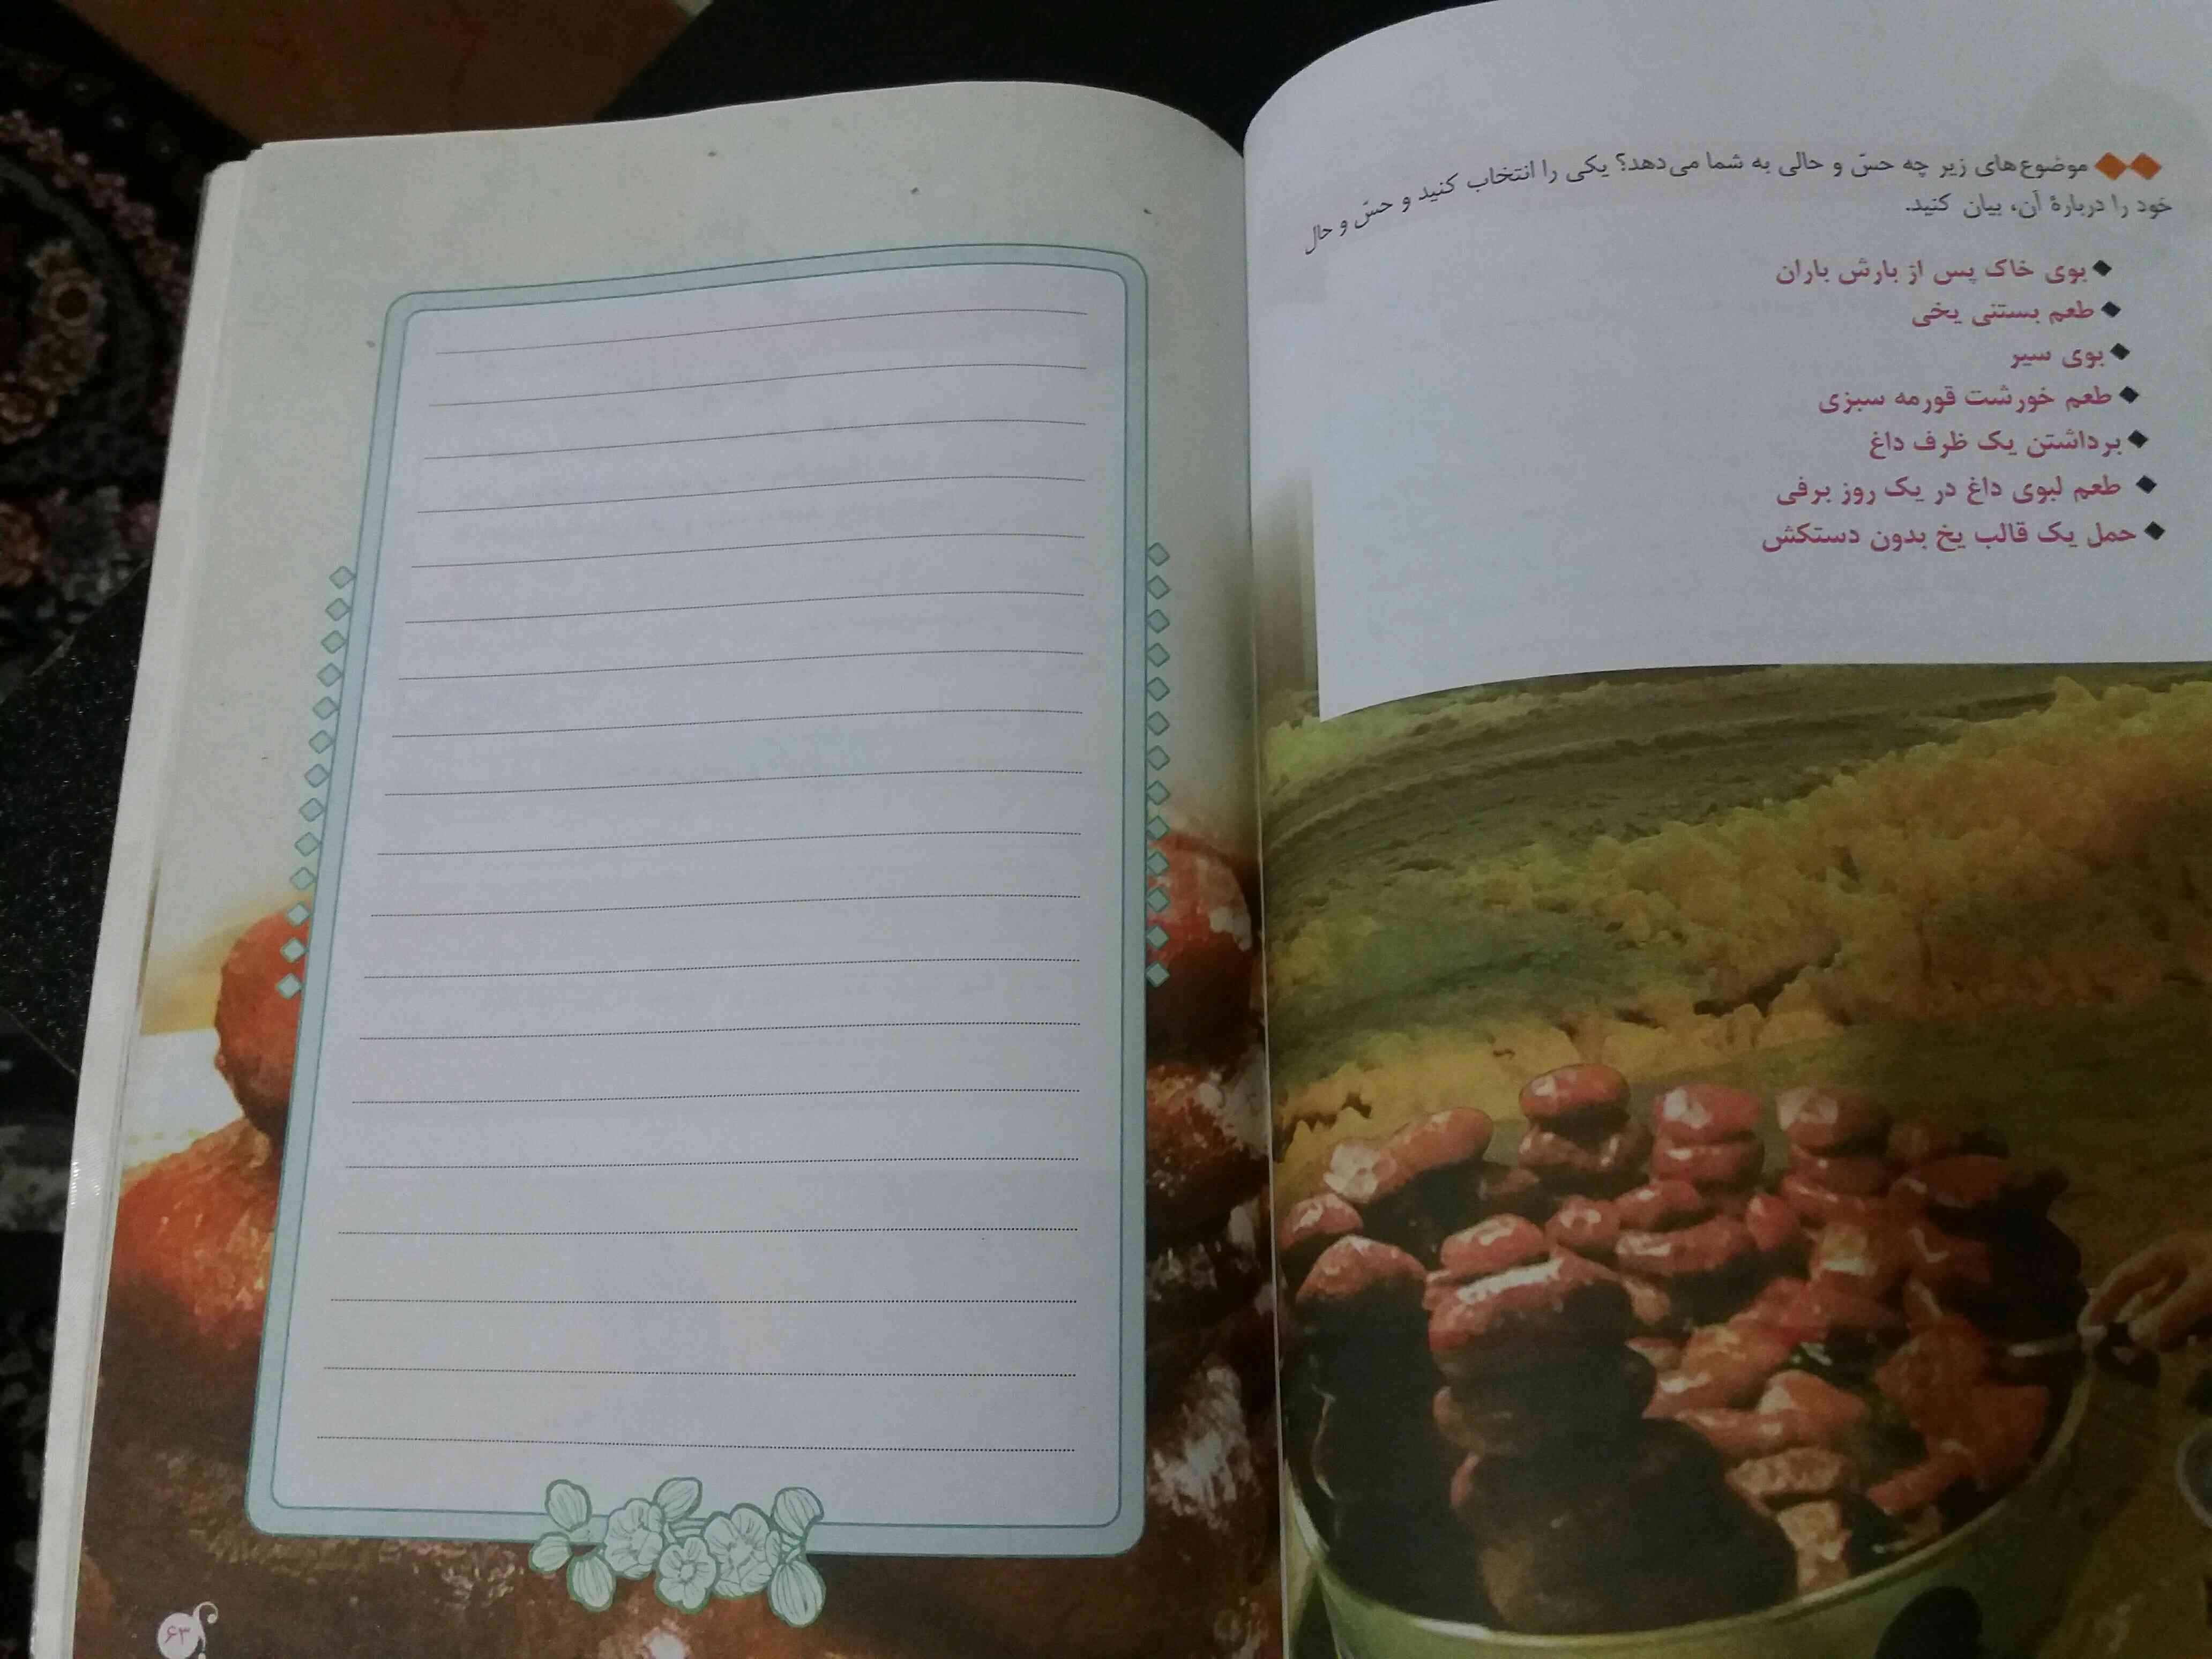 موضوع‌های زیر چه حسّ و حالی به شما می‌دهد؟ یکی را انتخاب کنید و حسّ و حال
خود را دربارهٔ آن، بیان کنید.
بوی خاک پس از بارش باران
طعم بستنی یخی
بوی سیر
طعم خورشت قورمه سبزی
برداشتن یک ظرف داغ
طعم لبوی داغ در یک روز برفی
حمل یک قالب یخ بدون دستکش
۶۳